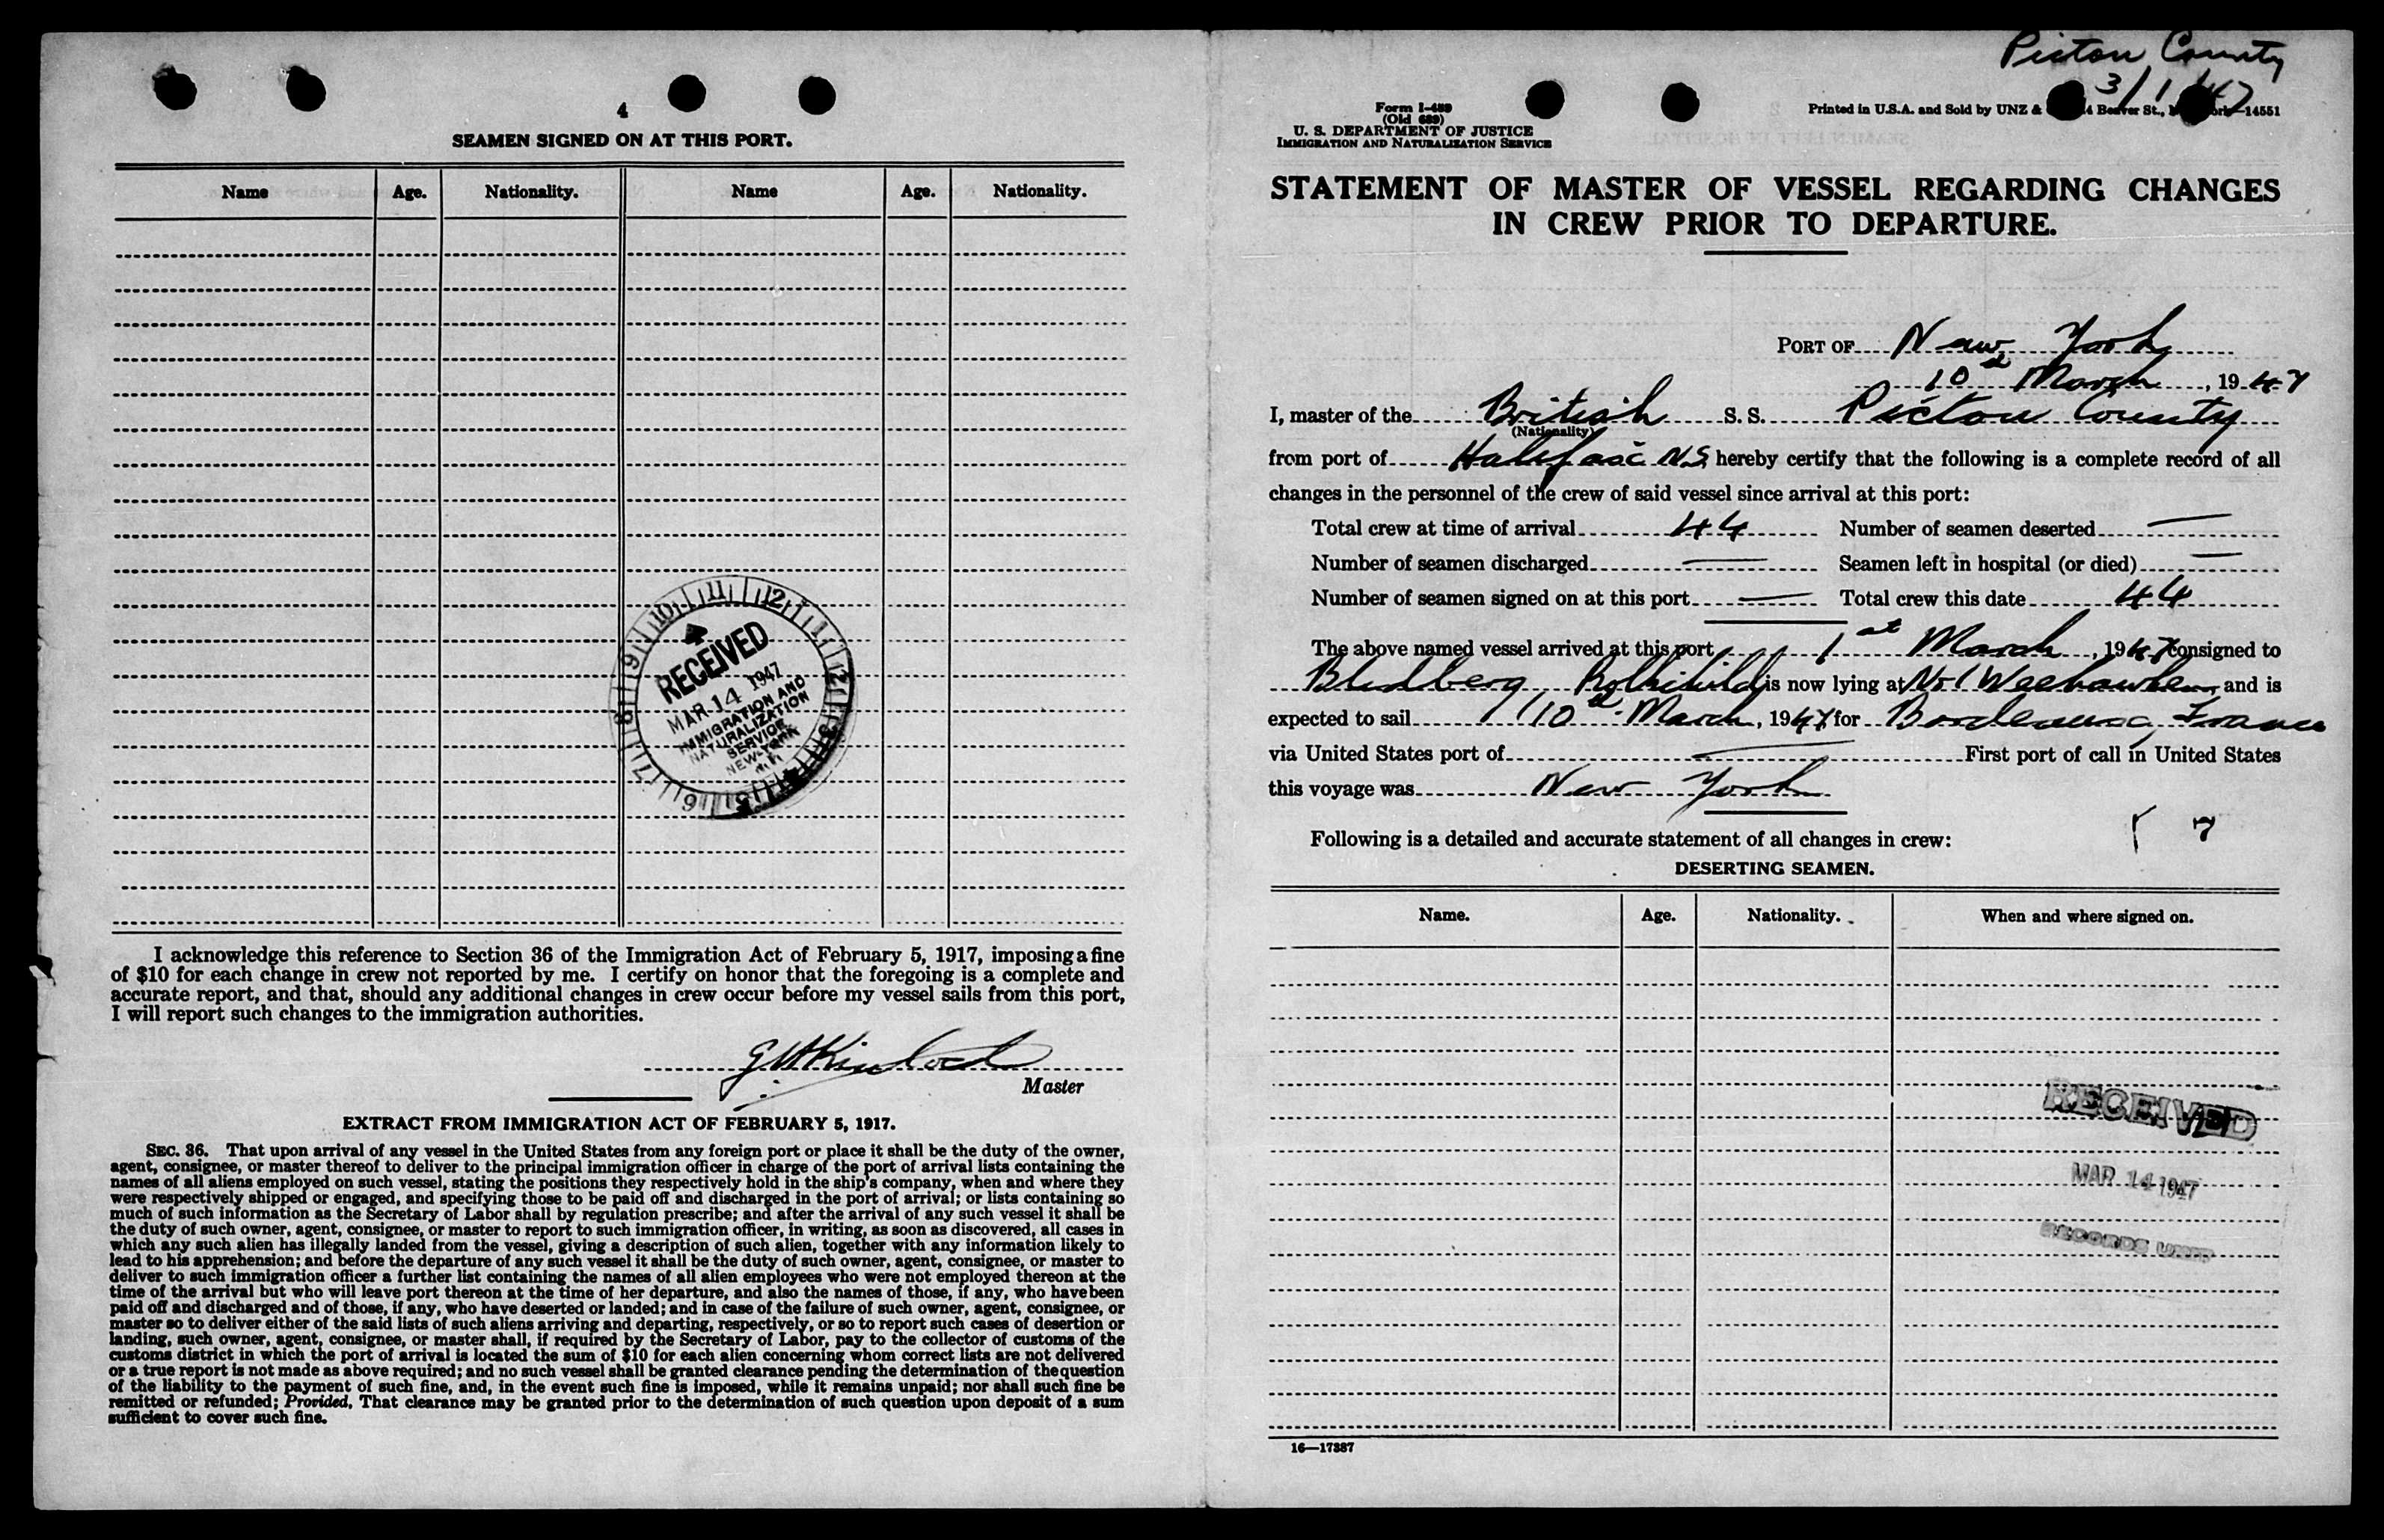 4
SEAMEN SIGNED ON AT THIS PORT.
Name Age. Nationality. Name Age. Nationality.
10 11 12 1 2 3 4 5 6 7 8 9
RECEIVED
MAR 14 1947
IMMIGRATION AND
NATURALIZATION
SERVICE
NEW YORK
N.Y.
I acknowledge this reference to Section 36 of the Immigration Act of February 5, 1917, imposing a fine
of $10 for each change in crew not reported by me. I certify on honor that the foregoing is a complete and
accurate report, and that, should any additional changes in crew occur before my vessel sails from this port,
I will report such changes to the immigration authorities.
Master
EXTRACT FROM IMMIGRATION ACT OF FEBRUARY 5, 1917.
SEC. 36. That upon arrival of any vessel in the United States from any foreign port or place it shall be the duty of the owner,
agent, consignee, or master thereof to deliver to the principal immigration officer in charge of the port of arrival lists containing the
names of all aliens employed on such vessel, stating the positions they respectively hold in the ship's company, when and where they
were respectively shipped or engaged, and specifying those to be paid off and discharged in the port of arrival; or lists containing so
much of such information as the Secretary of Labor shall by regulation prescribe; and after the arrival of any such vessel it shall be
the duty of such owner, agent, consignee, or master to report to such immigration officer, in writing, as soon as discovered, all cases in
which any such alien has illegally landed from the vessel, giving a description of such alien, together with any information likely to
lead to his apprehension; and before the departure of any such vessel it shall be the duty of such owner, agent, consignee, or master to
deliver to such immigration officer a further list containing the names of all alien employees who were not employed thereon at the
time of the arrival but who will leave port thereon at the time of her departure, and also the names of those, if any, who have been
paid off and discharged and of those, if any, who have deserted or landed; and in case of the failure of such owner, agent, consignee, or
master so to deliver either of the said lists of such aliens arriving and departing, respectively, or so to report such cases of desertion or
landing, such owner, agent, consignee, or master shall, if required by the Secretary of Labor, pay to the collector of customs of the
customs district in which the port of arrival is located the sum of $10 for each alien concerning whom correct lists are not delivered
or a true report is not made as above required; and no such vessel shall be granted clearance pending the determination of the question
of the liability to the payment of such fine, and, in the event such fine is imposed, while it remains unpaid; nor shall such fine be
remitted or refunded; Provided, That clearance may be granted prior to the determination of such question upon deposit of a sum
sufficient to cover such fine.
Picton County
3/1/47
Form I-489
(Old 689)
U. S. DEPARTMENT OF JUSTICE
IMMIGRATION AND NATURALIZATION SERVICE
Printed in U.S.A. and Sold by UNZ & Beaver St., 14551
STATEMENT OF MASTER OF VESSEL REGARDING CHANGES
IN CREW PRIOR TO DEPARTURE.
PORT OF New York
10th March, 1947
I, master of the British S. S. Picton County
(Nationality)
from port of Halifax N.S. hereby certify that the following is a complete record of all
changes in the personnel of the crew of said vessel since arrival at this port:
Total crew at time of arrival 44 Number of seamen deserted —
Number of seamen discharged — Seamen left in hospital (or died) —
Number of seamen signed on at this port — Total crew this date 44
The above named vessel arrived at this port 1st March, 1947 consigned to
is now lying at No 1 Weehawken and is
expected to sail 10th March, 1947 for Bordeaux, France
via United States port of — First port of call in United States
this voyage was New York
Following is a detailed and accurate statement of all changes in crew: 7
DESERTING SEAMEN.
Name. Age. Nationality. When and where signed on.
RECEIVED
MAR 14 1947
RECORDS UNIT
16—17387